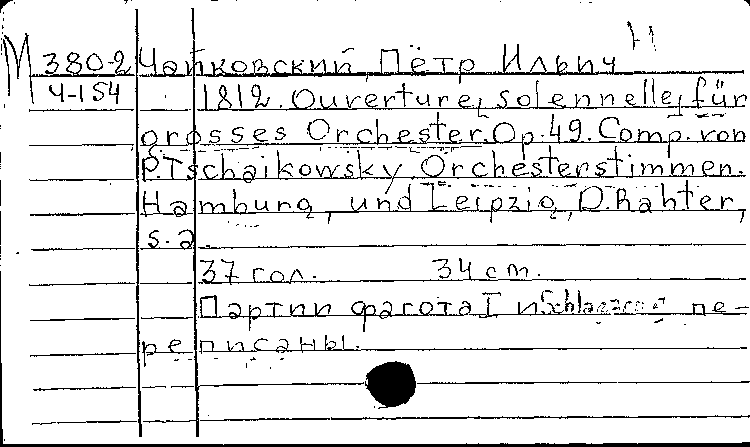 М 380-2 Чайковский, Пётр Ильич Н
Ч-154 1812. Ouverture solennelle für
grosses Orchester. Op. 49. Comp. von
P. Tschaikowsky. Orchesterstimmen.
Hamburg, und Leipzig, D. Rahter,
s. a.
37 гол. 34 cm.
Партии фагота I и пе-
реписаны.